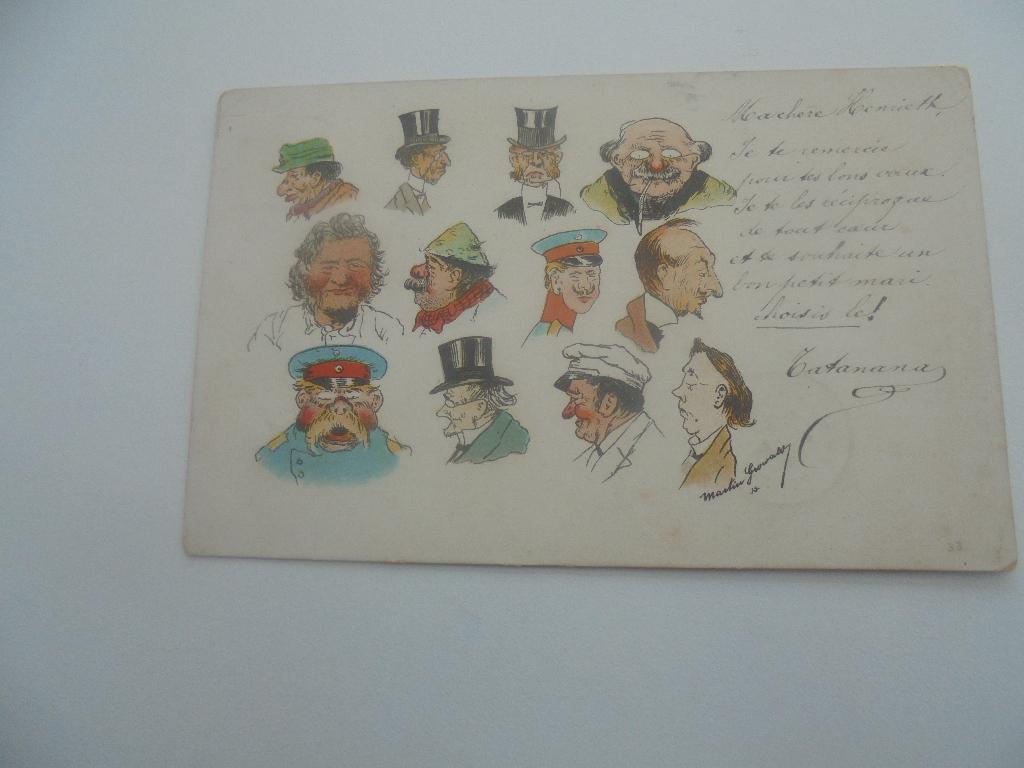 Ma chere Henrieth,
Je te remercie
pour tes bons vœux.
Je te les réciproque
de tout cœur
et te souhaite un
bon petit mari.
choisis le!
Tatanana
Martin
33